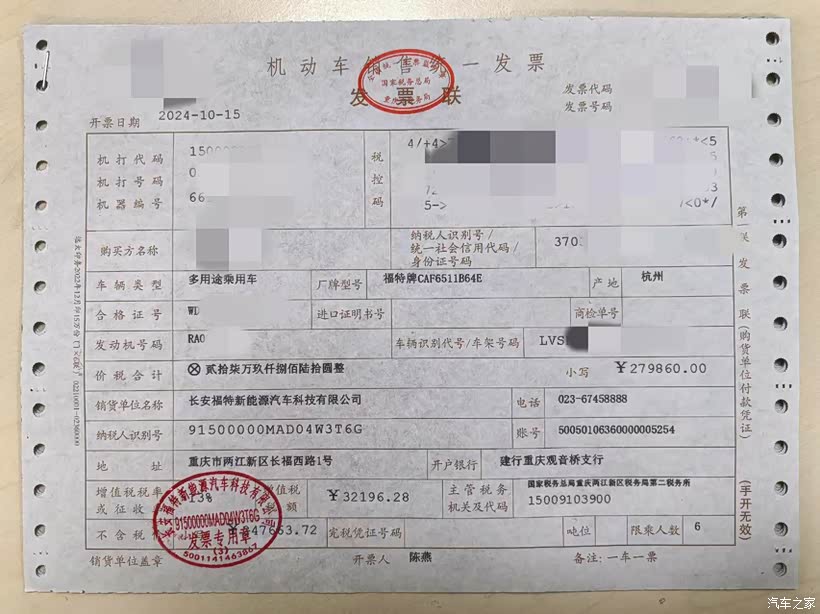 机动车销售统一发票
发票联
国家税务总局
发票代码
发票号码
开票日期 2024-10-15
机打代码 15000
机打号码 0
机器编号 66
税控码
4/+4> *<5
5-> /<0*/
购买方名称
纳税人识别号/
统一社会信用代码/
身份证号码
370
车辆类型 多用途乘用车 厂牌型号 福特牌CAF6511B64E 产地 杭州
合格证号 WD 进口证明书号 商检单号
发动机号码 RA0 车辆识别代号/车架号码 LVS
价税合计 ⊗贰拾柒万玖仟捌佰陆拾圆整 小写 ￥279860.00
销货单位名称 长安福特新能源汽车科技有限公司 电话 023-67458888
纳税人识别号 91500000MAD04W3T6G 账号 50050106360000005254
地址 重庆市两江新区长福西路1号 开户银行 建行重庆观音桥支行
增值税税率
或征收 13% 增值税
额 ￥32196.28 主管税务
机关及代码 国家税务总局重庆两江新区税务局第二税务所
15009103900
不含税 ￥247663.72 完税凭证号码 吨位 限乘人数 6
销货单位盖章 开票人 陈燕 备注:一车一票
长安福特新能源汽车科技有限公司
91500000MAD04W3T6G
发票专用章
(3)
5001141463867
第一联 发票联(购货单位付款凭证)
(手开无效)
02210001-02360000
汽车之家